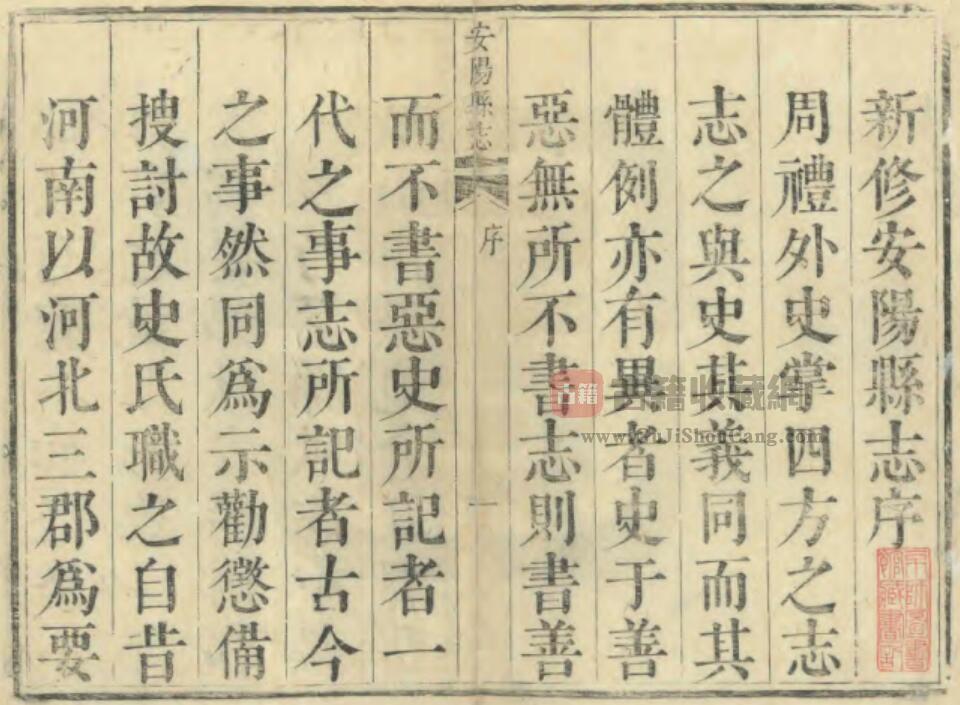 新修安陽縣志序
周禮外史掌四方之志
志之與史其義同而其
體例亦有異者史于善
惡無所不書志則書善
安陽縣志
序
一
而不書惡史所記者一
代之事志所記者古今
之事然同爲示勸懲備
搜討故史氏職之自昔
河南以河北三郡爲要
古籍
古籍收藏網
www.GuJiShouCang.com